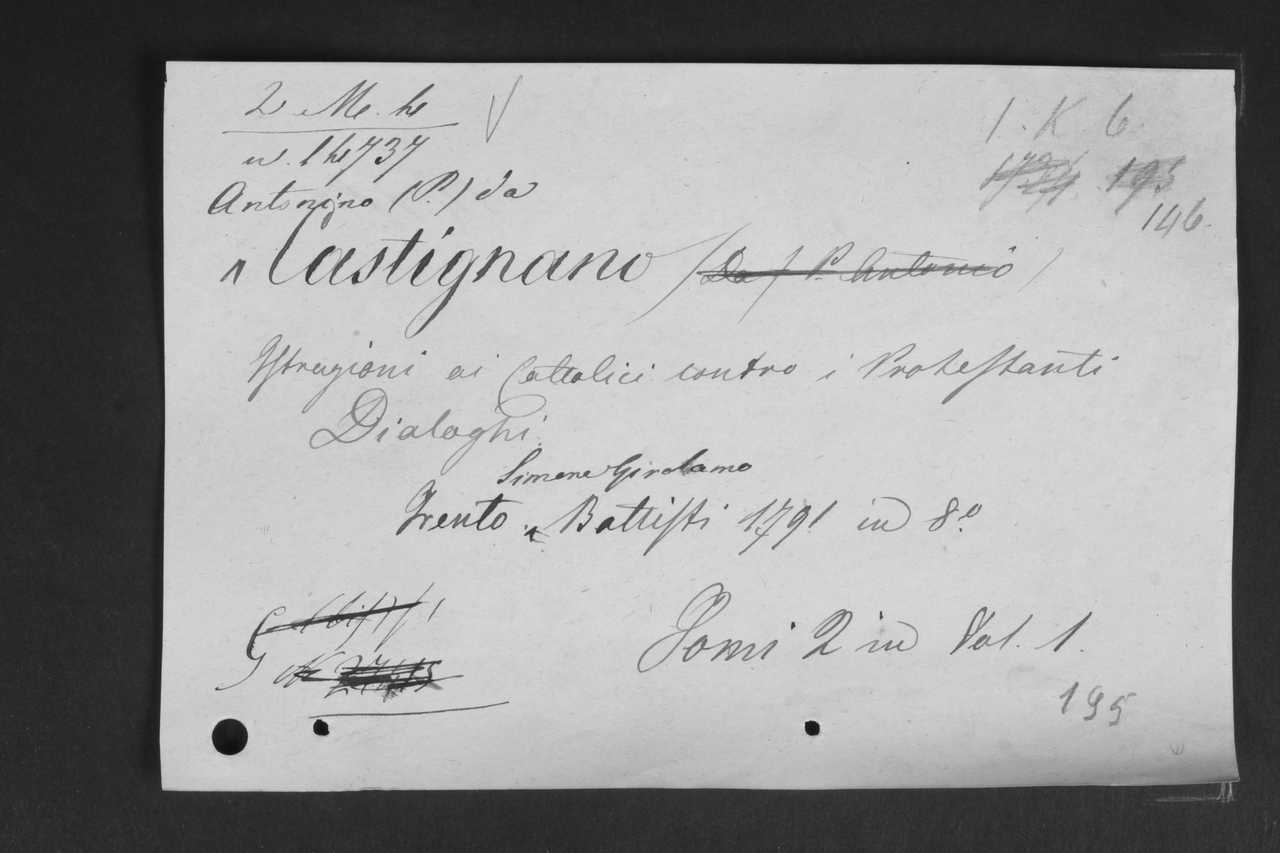 I. K 6.
Antonino (P.) da
146.
Castignano (Da / P. Antonio)
Istruzioni ai Cattolici contro i Protestanti
Dialoghi.
Simone Girolamo
Trento. Battisti 1791 in 8.º
Tomi 2 in Vol. 1.
195